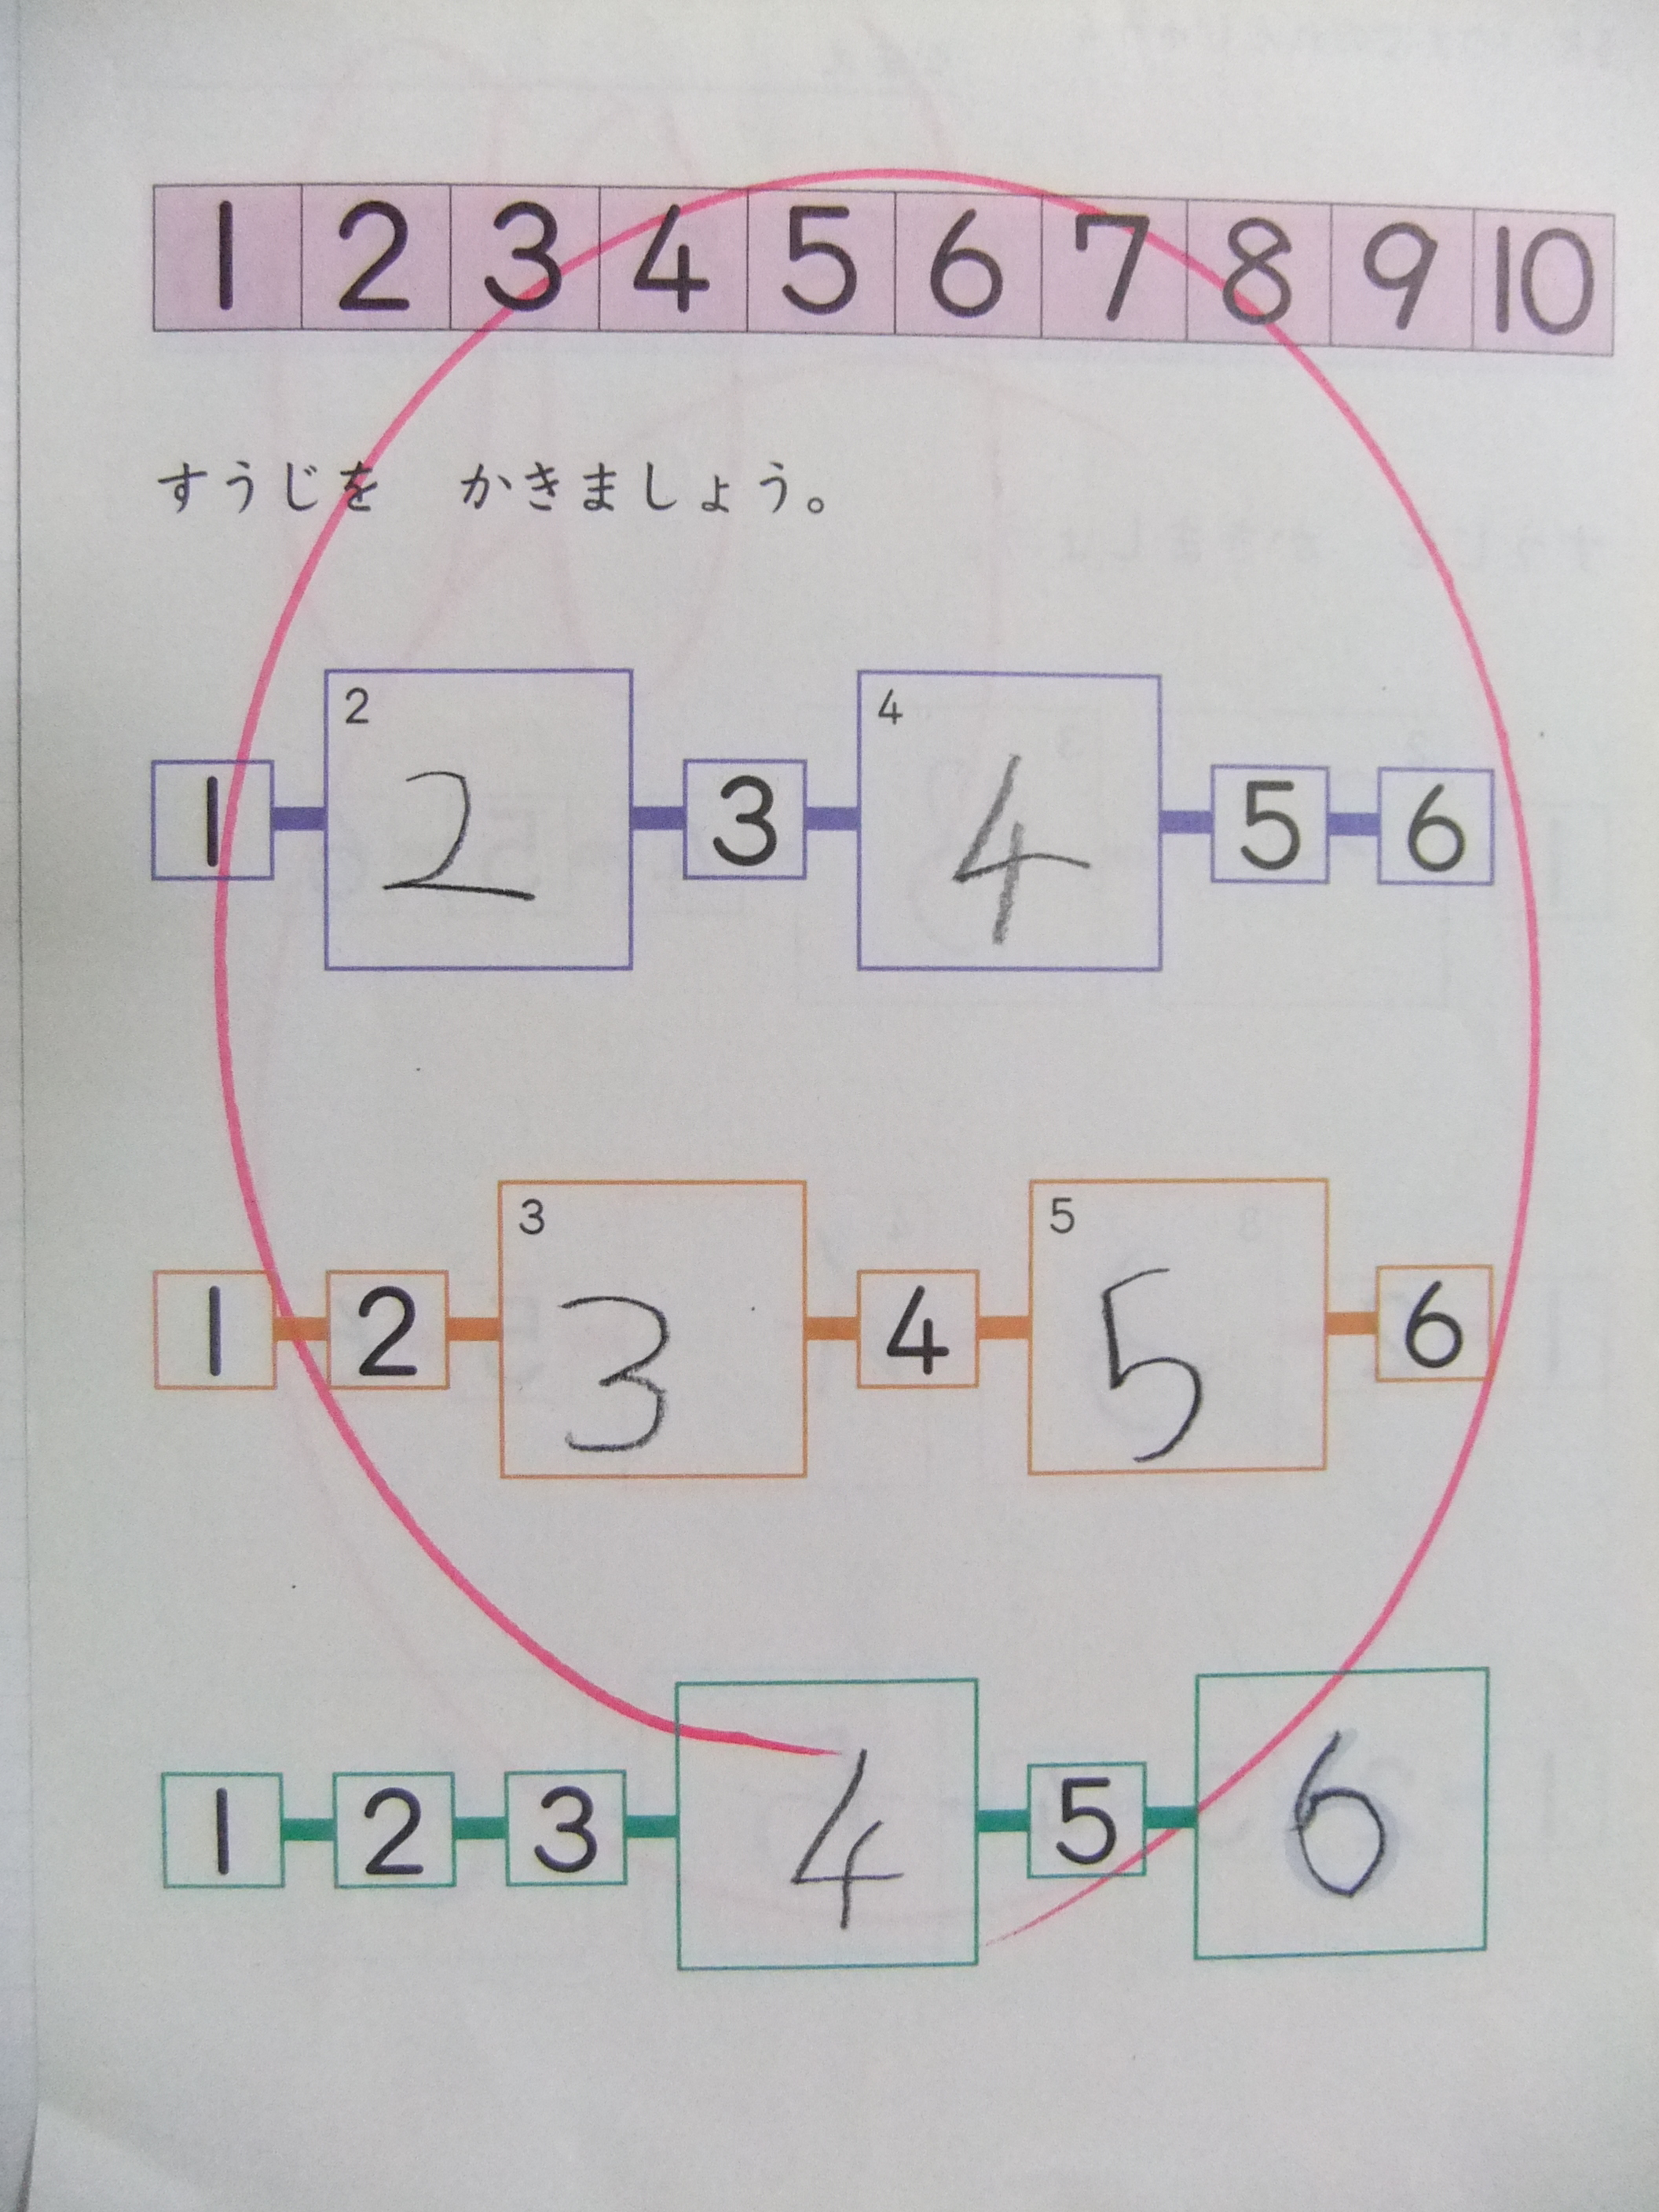 1 2 3 4 5 6 7 8 9 10
すうじを　かきましょう。
2 4
1 2 3 4 5 6
3 5
1 2 3 4 5 6
1 2 3 4 5 6